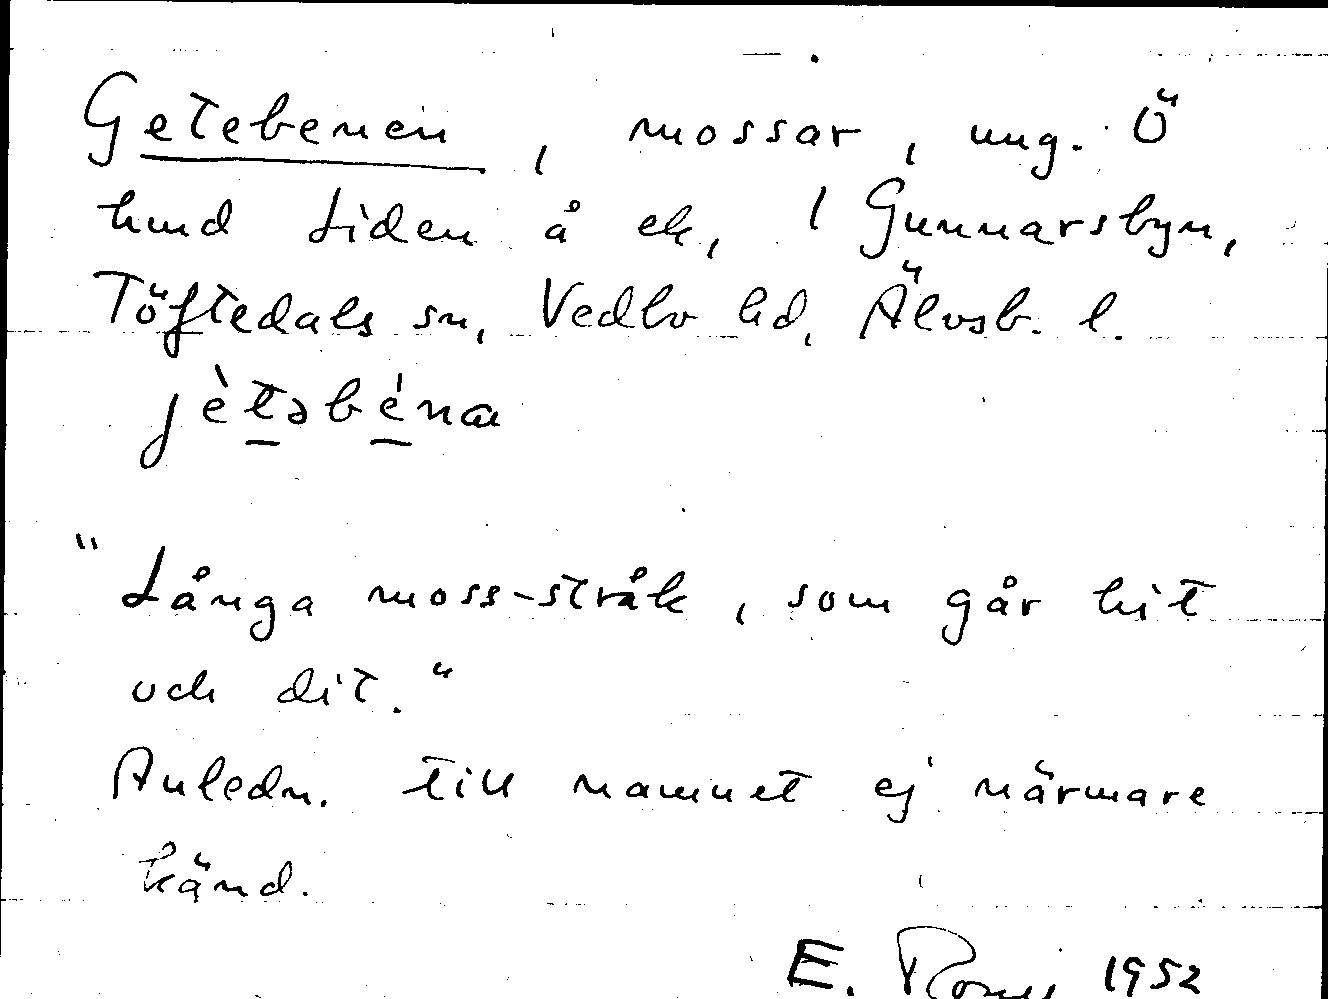 Getebenen, mossar, ung. Ö
hmd Liden å ek, 1 Gunnarsbyn,
Töftedals sn, Vedbo hd, Älvsb. l.
jètəbéna
"Långa moss-stråk, som går hit
och dit."
Anledn. till namnet ej närmare
känd.
E. 1952